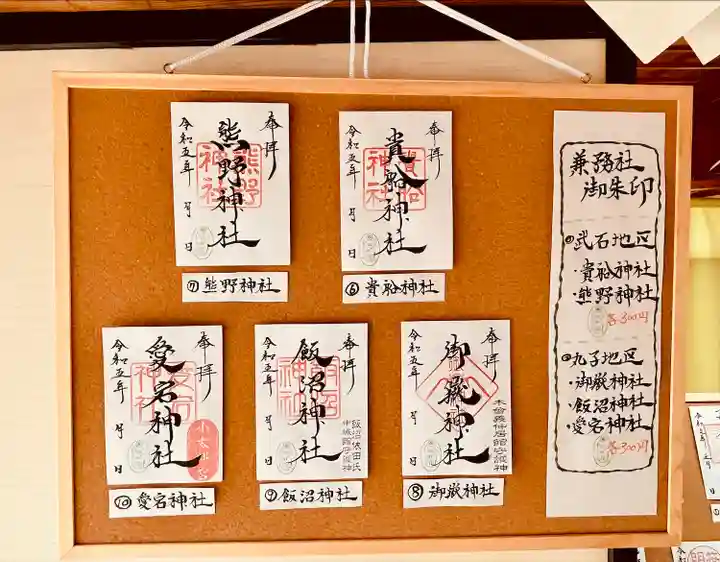 奉拝
熊野神社
熊野
神社
令和五年 月 日
⑦熊野神社
奉拝
貴船神社
貴船
神社
令和五年 月 日
⑥貴船神社
兼務社
御朱印
武石地区
・貴船神社
・熊野神社
各300円
丸子地区
・御嶽神社
・飯沼神社
・愛宕神社
各300円
奉拝
愛宕神社
愛宕
神社
令和五年 月 日
⑩愛宕神社
奉拝
飯沼神社
飯沼
神社
飯沼依田氏
令和五年 月 日
⑨飯沼神社
奉拝
御嶽神社
木曽義仲居館守護神
令和五年 月 日
⑧御嶽神社